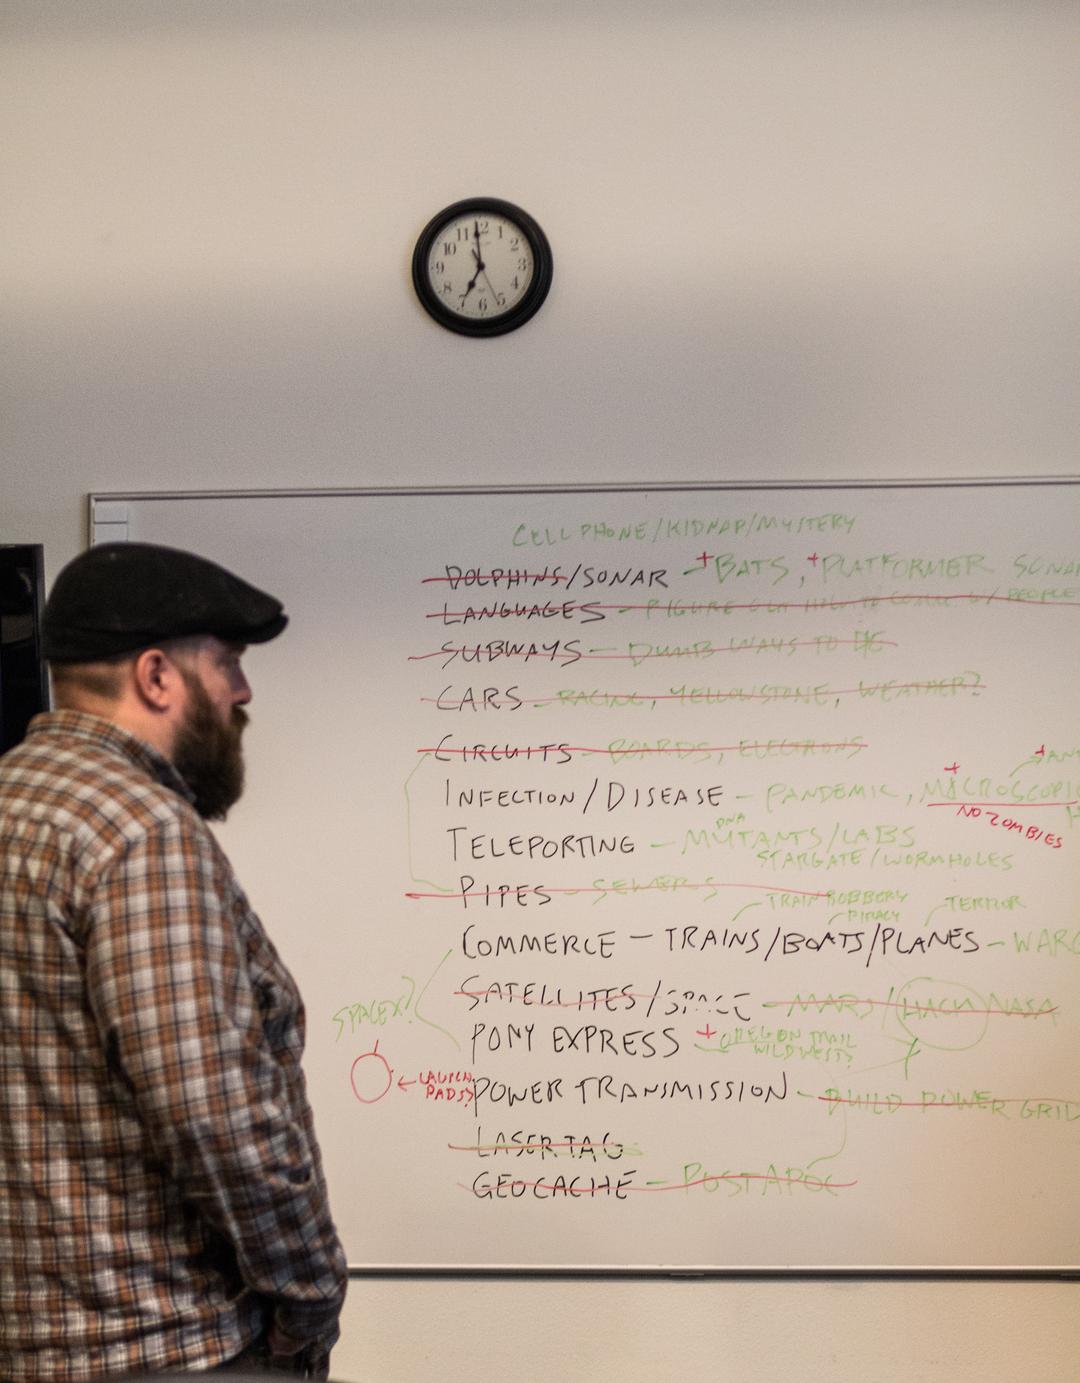 11 12 1
10 2
9 3
8 4
7 6 5
CELL PHONE/KIDNAP/MYSTERY
DOLPHINS/SONAR - +BATS, +PLATFORMER SONAR
LANGUAGES - FIGURE OUT HOW TO COMM. W/ PEOPLE
SUBWAYS - DUMB WAYS TO DIE
CARS - RACING, YELLOWSTONE, WEATHER?
CIRCUITS - BOARDS, ELECTRONS
INFECTION/DISEASE - PANDEMIC, MACROSCOPIC
NO ZOMBIES
DNA
TELEPORTING - MUTANTS/LABS
STARGATE/WORMHOLES
PIPES - SEWERS
TRAIN ROBBERY
PIRACY
TERROR
COMMERCE - TRAINS/BOATS/PLANES -
SATELLITES/SPACE - MARS/HACK NASA
SPACEX?
PONY EXPRESS + OREGON TRAIL
WILD WEST?
LAUNCH
PADS?
POWER TRANSMISSION - BUILD POWER GRID
LASER TAG
GEOCACHE - POST APOC